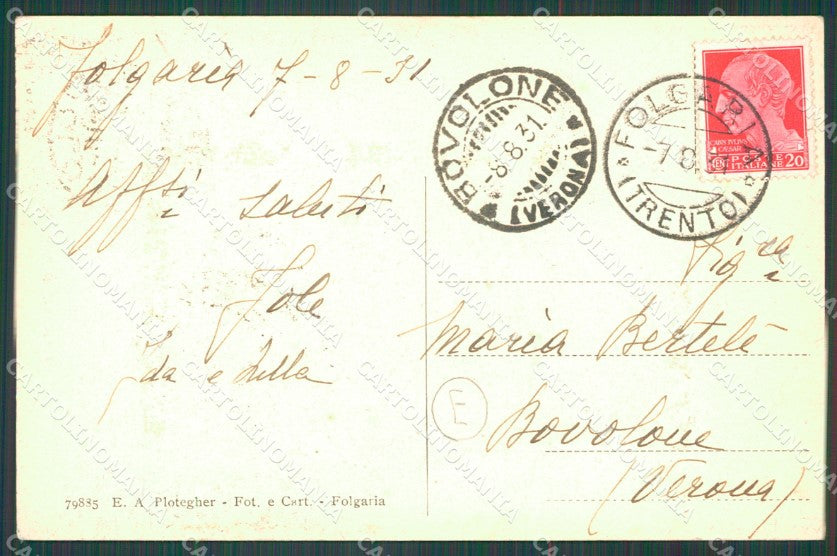 Folgaria 7-8-31
Aff.si saluti
Jole
Ida e Lilla
79885 E. A. Plotegher - Fot. e Cart. - Folgaria
BOVOLONE
8.8.31.
(VERONA)
FOLGARIA
-7.8.
(TRENTO)
CAESAR
POSTE
ITALIANE
20
Sig.ra
Maria Bertelè
Bovolone
(Verona)
E
CARTOLINOMANIA